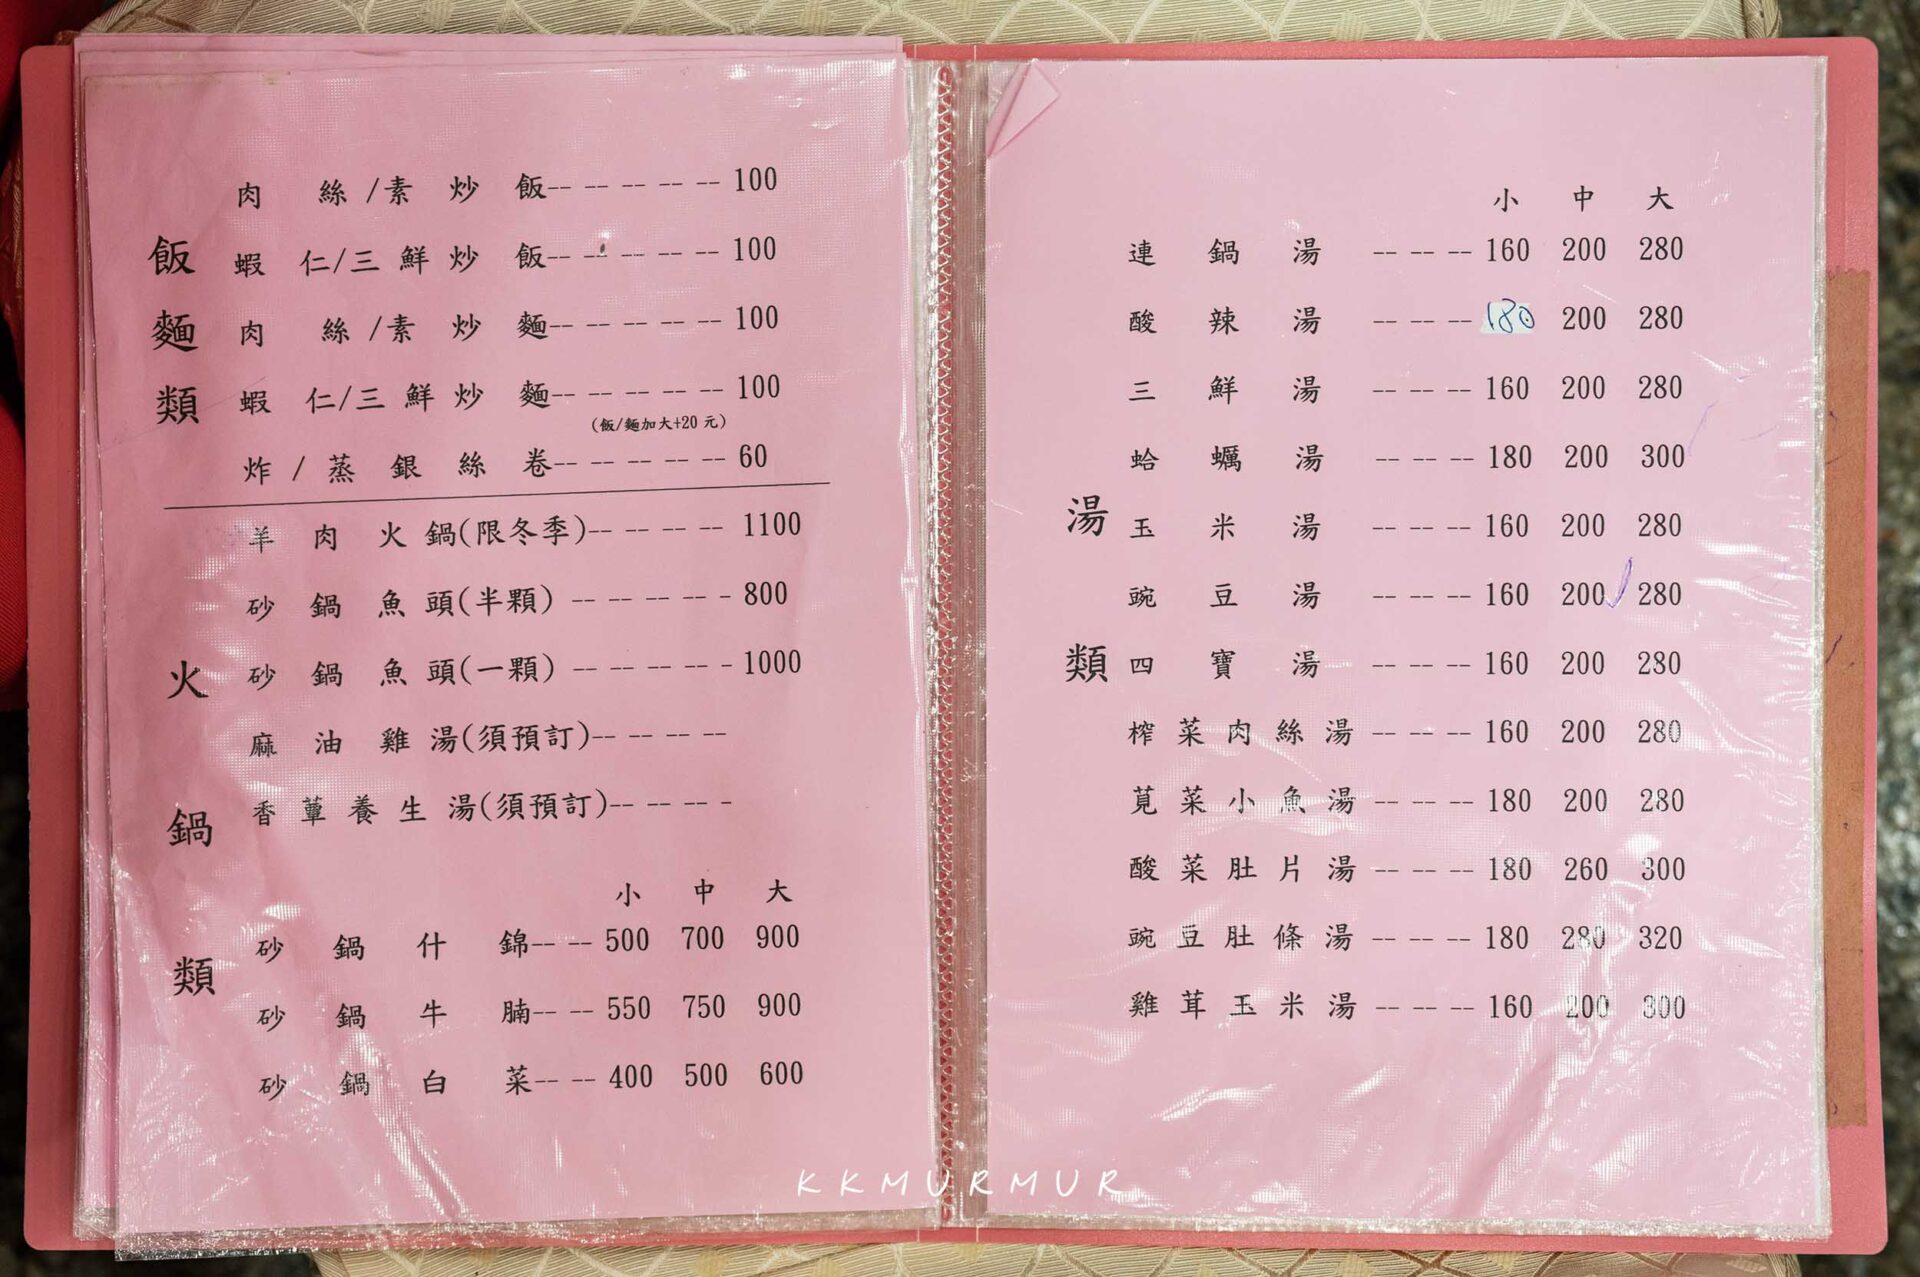 飯麵類
肉絲/素炒飯-- -- -- -- -- 100
蝦仁/三鮮炒飯-- -- -- -- -- 100
肉絲/素炒麵-- -- -- -- -- 100
蝦仁/三鮮炒麵-- -- -- -- -- 100
(飯/麵加大+20元)
炸/蒸銀絲卷-- -- -- -- -- 60
火鍋類
羊肉火鍋(限冬季)-- -- -- -- 1100
砂鍋魚頭(半顆) -- -- -- -- -- 800
砂鍋魚頭(一顆) -- -- -- -- - 1000
麻油雞湯(須預訂)-- -- -- --
香蕈養生湯(須預訂)-- -- -- -
小 中 大
砂鍋什錦-- -- 500 700 900
砂鍋牛腩-- -- 550 750 900
砂鍋白菜-- -- 400 500 600
湯類
小 中 大
連鍋湯 -- -- -- 160 200 280
酸辣湯 -- -- -- 180 200 280
三鮮湯 -- -- -- 160 200 280
蛤蠣湯 -- -- -- 180 200 300
玉米湯 -- -- -- 160 200 280
豌豆湯 -- -- -- 160 200 280
四寶湯 -- -- -- 160 200 280
榨菜肉絲湯 -- -- -- 160 200 280
莧菜小魚湯 -- -- -- 180 200 280
酸菜肚片湯 -- -- -- 180 260 300
豌豆肚條湯 -- -- -- 180 280 320
雞茸玉米湯 -- -- -- 160 200 300
KKMURMUR